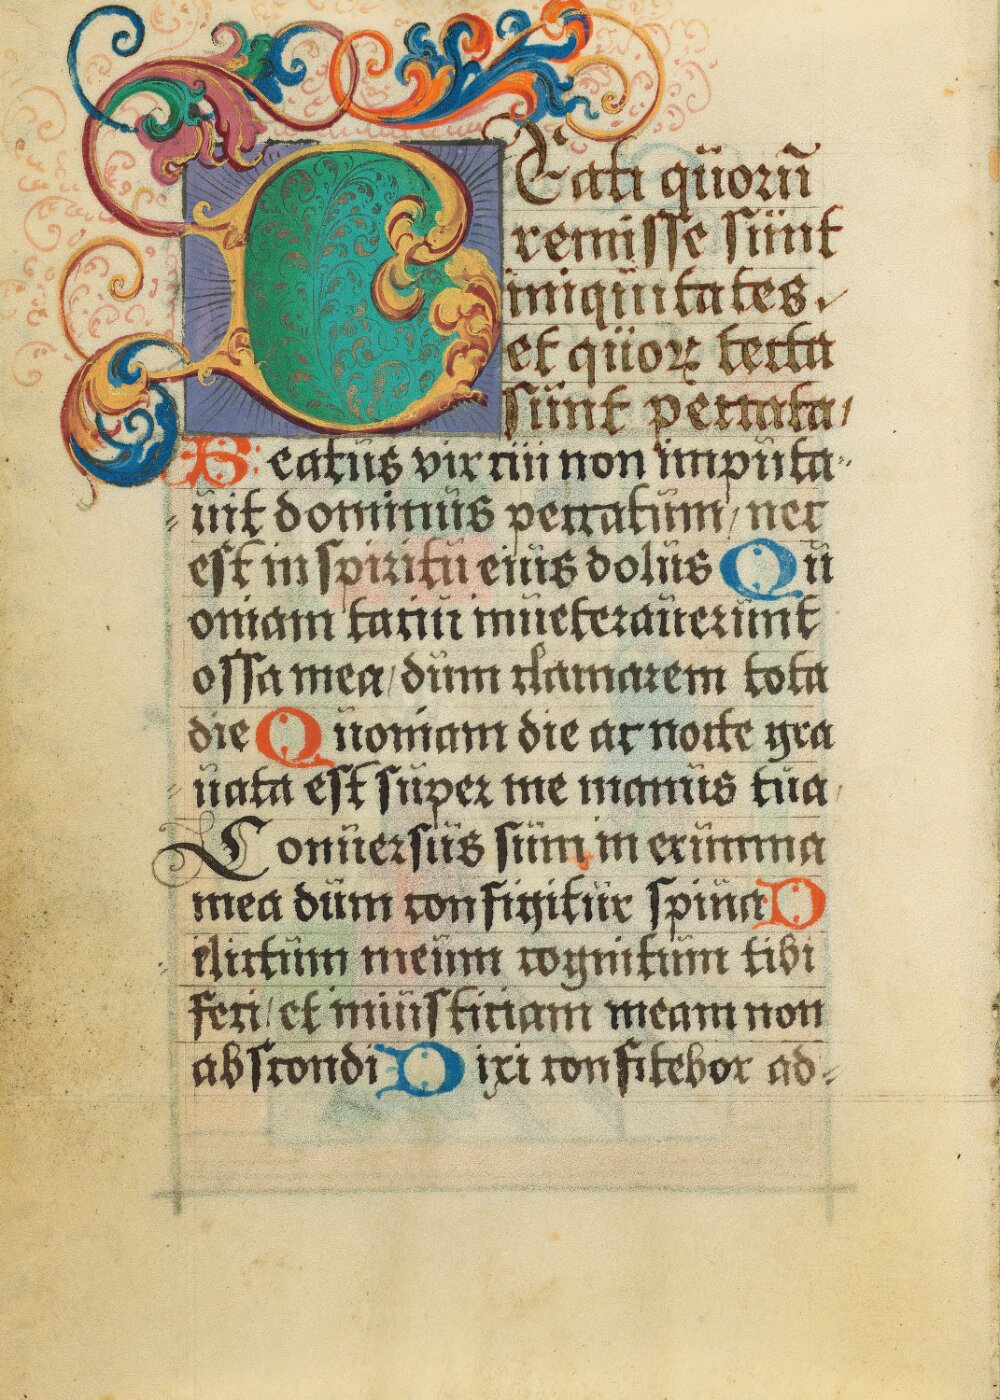 BEati quorū
remisse sunt
iniquitates.
et quorꝝ tecta
sunt peccata/
Beatus vir cui non imputa-
uit dominus peccatum/ nec
est in spiritu eius dolus Qu
oniam tacui inueterauerunt
ossa mea/ dum clamarem tota
die Quoniam die ac nocte gra
uata est super me manus tua/
Conuersus sum in erumna
mea dum configitur spina D
elictum meum cognitum tibi
feci/ et iniusticiam meam non
abscondi Dixi confitebor ad-